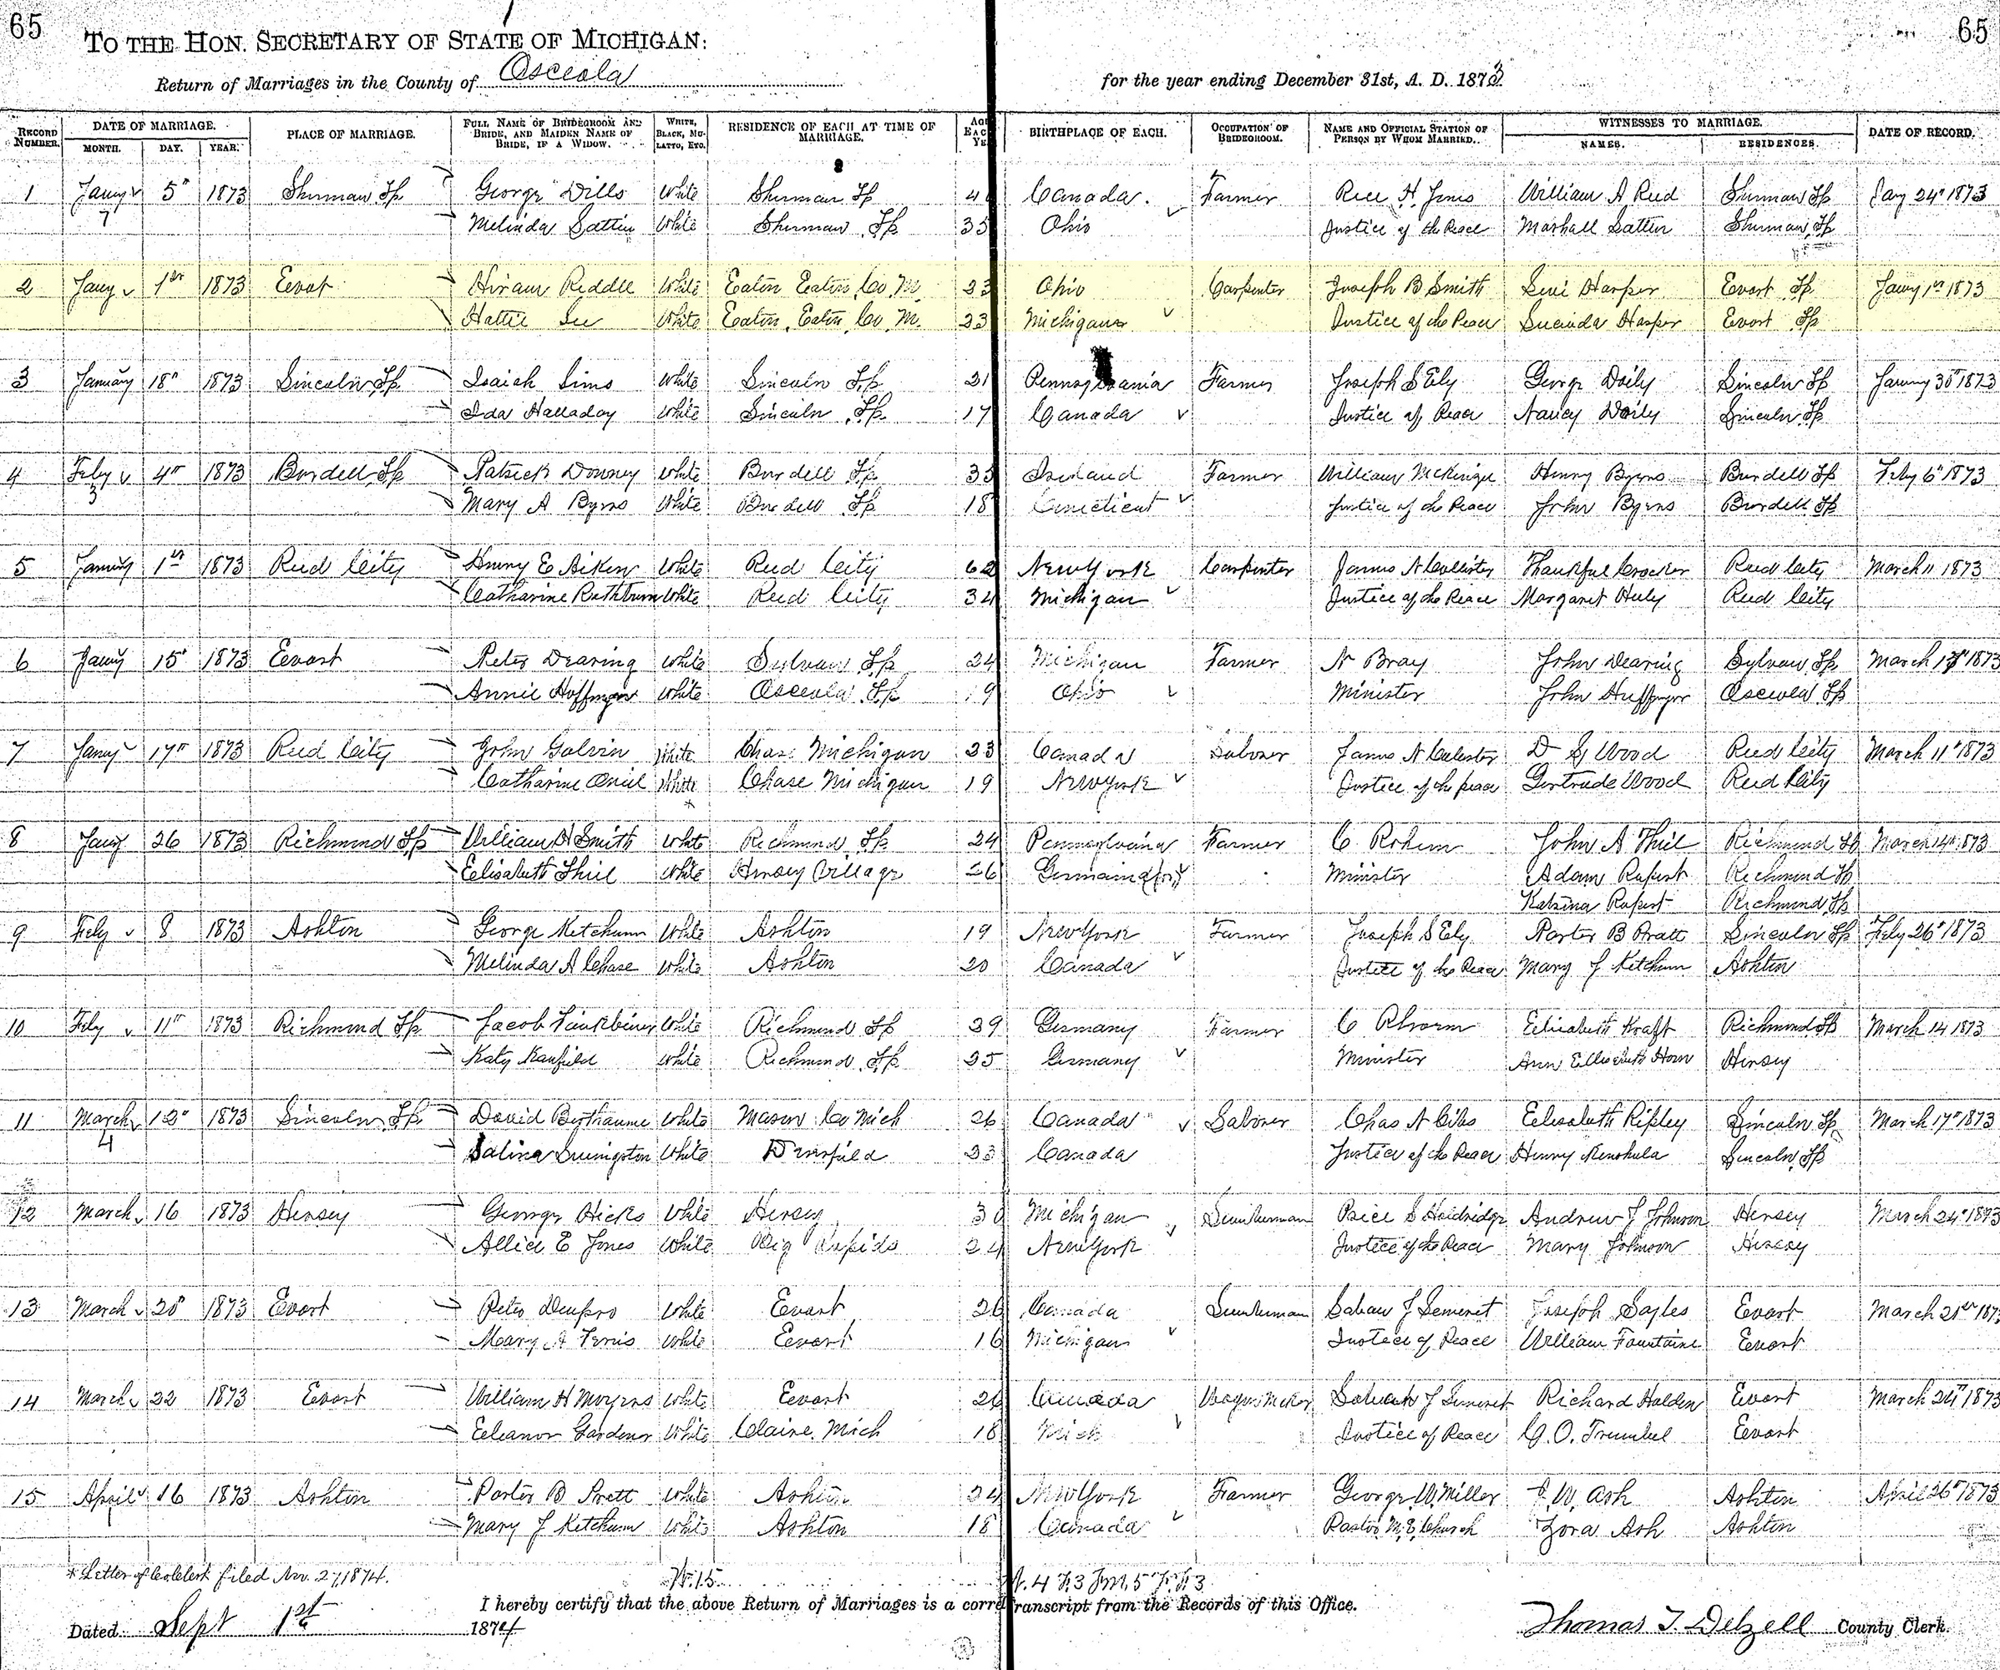 65 65
TO THE HON. SECRETARY OF STATE OF MICHIGAN:
Return of Marriages in the County of Osceola for the year ending December 31st, A. D. 1873.
RECORD NUMBER. DATE OF MARRIAGE. MONTH. DAY. YEAR. PLACE OF MARRIAGE. FULL NAME OF BRIDEGROOM AND BRIDE, AND MAIDEN NAME OF BRIDE, IF A WIDOW. WHITE, BLACK, MULATTO, ETC. RESIDENCE OF EACH AT TIME OF MARRIAGE. BIRTHPLACE OF EACH. OCCUPATION OF BRIDEGROOM. NAME AND OFFICIAL STATION OF PERSON BY WHOM MARRIED. WITNESSES TO MARRIAGE. NAMES. RESIDENCES. DATE OF RECORD.
1 Jany 5" 1873 Sherman Tp George Dills White Sherman Tp Canada Farmer William A Reed Sherman Tp Jany 24" 1873
7 Melinda White Sherman Tp 35 Ohio Justice of the Peace Marshall Sherman Tp
2 Jany 1st 1873 Evart Hiram Riddle White Eaton Eaton Co M. 23 Ohio Carpenter Joseph B Smith Levi Harper Evart Tp Jany 1st 1873
Hattie Lee White Eaton, Eaton Co M. 23 Michigan Justice of the Peace Lucinda Harper Evart Tp
3 January 18" 1873 Lincoln Tp Isaiah Sims White Lincoln Tp 21 Pennsylvania Farmer Joseph S Ely George Doily Lincoln Tp Jany 30" 1873
Ida Halladay White Lincoln Tp 17 Canada Justice of Peace Nancy Doily Lincoln Tp
4 Feby 4" 1873 Burdell Tp Patrick Downey White Burdell Tp 35 Ireland Farmer William Henry Byrns Burdell Tp Feby 6" 1873
3 Mary A Byrns White Burdell Tp 18 Conecticut Justice of the Peace John Byrns Burdell Tp
5 January 1st 1873 Reed City Henry E Aiken White Reed City 62 New York Carpenter Thankful Crocker Reed City March 11 1873
Catharine Rathburn White Reed City 34 Michigan Justice of the Peace Margaret Reed City
6 Jany 15" 1873 Evart Peter Dearing White Sylvan Tp 24 Michigan Farmer N Bray John Dearing Sylvan Tp March 1873
Annie White Osceola Tp 19 Ohio Minister John Osceola Tp
7 Jany 17" 1873 Reed City John Galvin White Chase Michigan 23 Canada Laborer D G Wood Reed City March 11" 1873
Catharine White Chase Michigan 19 New York Justice of the peace Gertrude Wood Reed City
8 Jany 26 1873 Richmond Tp William H Smith White Richmond Tp 24 Pennsylvania Farmer C John A Thiel Richmond Tp March 14" 1873
Elisabeth Thiel White Hersey Village 26 Minister Adam Rupert Richmond Tp
Katrina Rupert Richmond Tp
9 Feby 8 1873 Ashton George Ketchum White Ashton 19 New York Farmer Joseph S Ely Porter B Pratt Lincoln Tp Feby 26" 1873
Melinda A Chase White Ashton 20 Canada Justice of the Peace Mary J Ketchum Ashton
10 Feby 11" 1873 Richmond Tp Jacob White Richmond Tp Germany Farmer C Elisabeth Kraft Richmond Tp March 14 1873
Katy White Richmond Tp Germany Minister Ann Elisabeth Horn Hersey
11 March 1873 Lincoln Tp David White Mason Co Mich 26 Canada Laborer Chas Elisabeth Ripley Lincoln Tp March 17" 1873
4 Salina Livingston White 23 Canada Justice of the Peace Henry Lincoln Tp
12 March 16 1873 Hersey George Hicks White Hersey Michigan Lumberman Andrew J Johnson Hersey March 24" 1873
Allice E Jones White Big Rapids 24 New York Justice of the Peace Mary Johnson Hersey
13 March 20" 1873 Evart Peter White Evart 26 Canada Lumberman Joseph Sayles Evart March 21st 1873
Mary A White Evart 16 Michigan Justice of Peace William Fountaine Evart
14 March 22 1873 Evart William H White Evart Canada Richard Halden Evart March 24" 1873
Eeleanor Gardener White Claire Mich 18 Mich Justice of Peace G. O. Trumbul Evart
15 April 16 1873 Ashton Porter B Pratt White Ashton 24 New York Farmer George W. Miller W. Ash Ashton April 26" 1873
Mary J Ketchum White Ashton 18 Canada Pastor M. E. Church Zora Ash Ashton
* Letter of Co Clerk filed Nov. 27, 1874.
I hereby certify that the above Return of Marriages is a corre transcript from the Records of this Office.
Dated Sept 1st 1874 Thomas T. Delzell County Clerk.